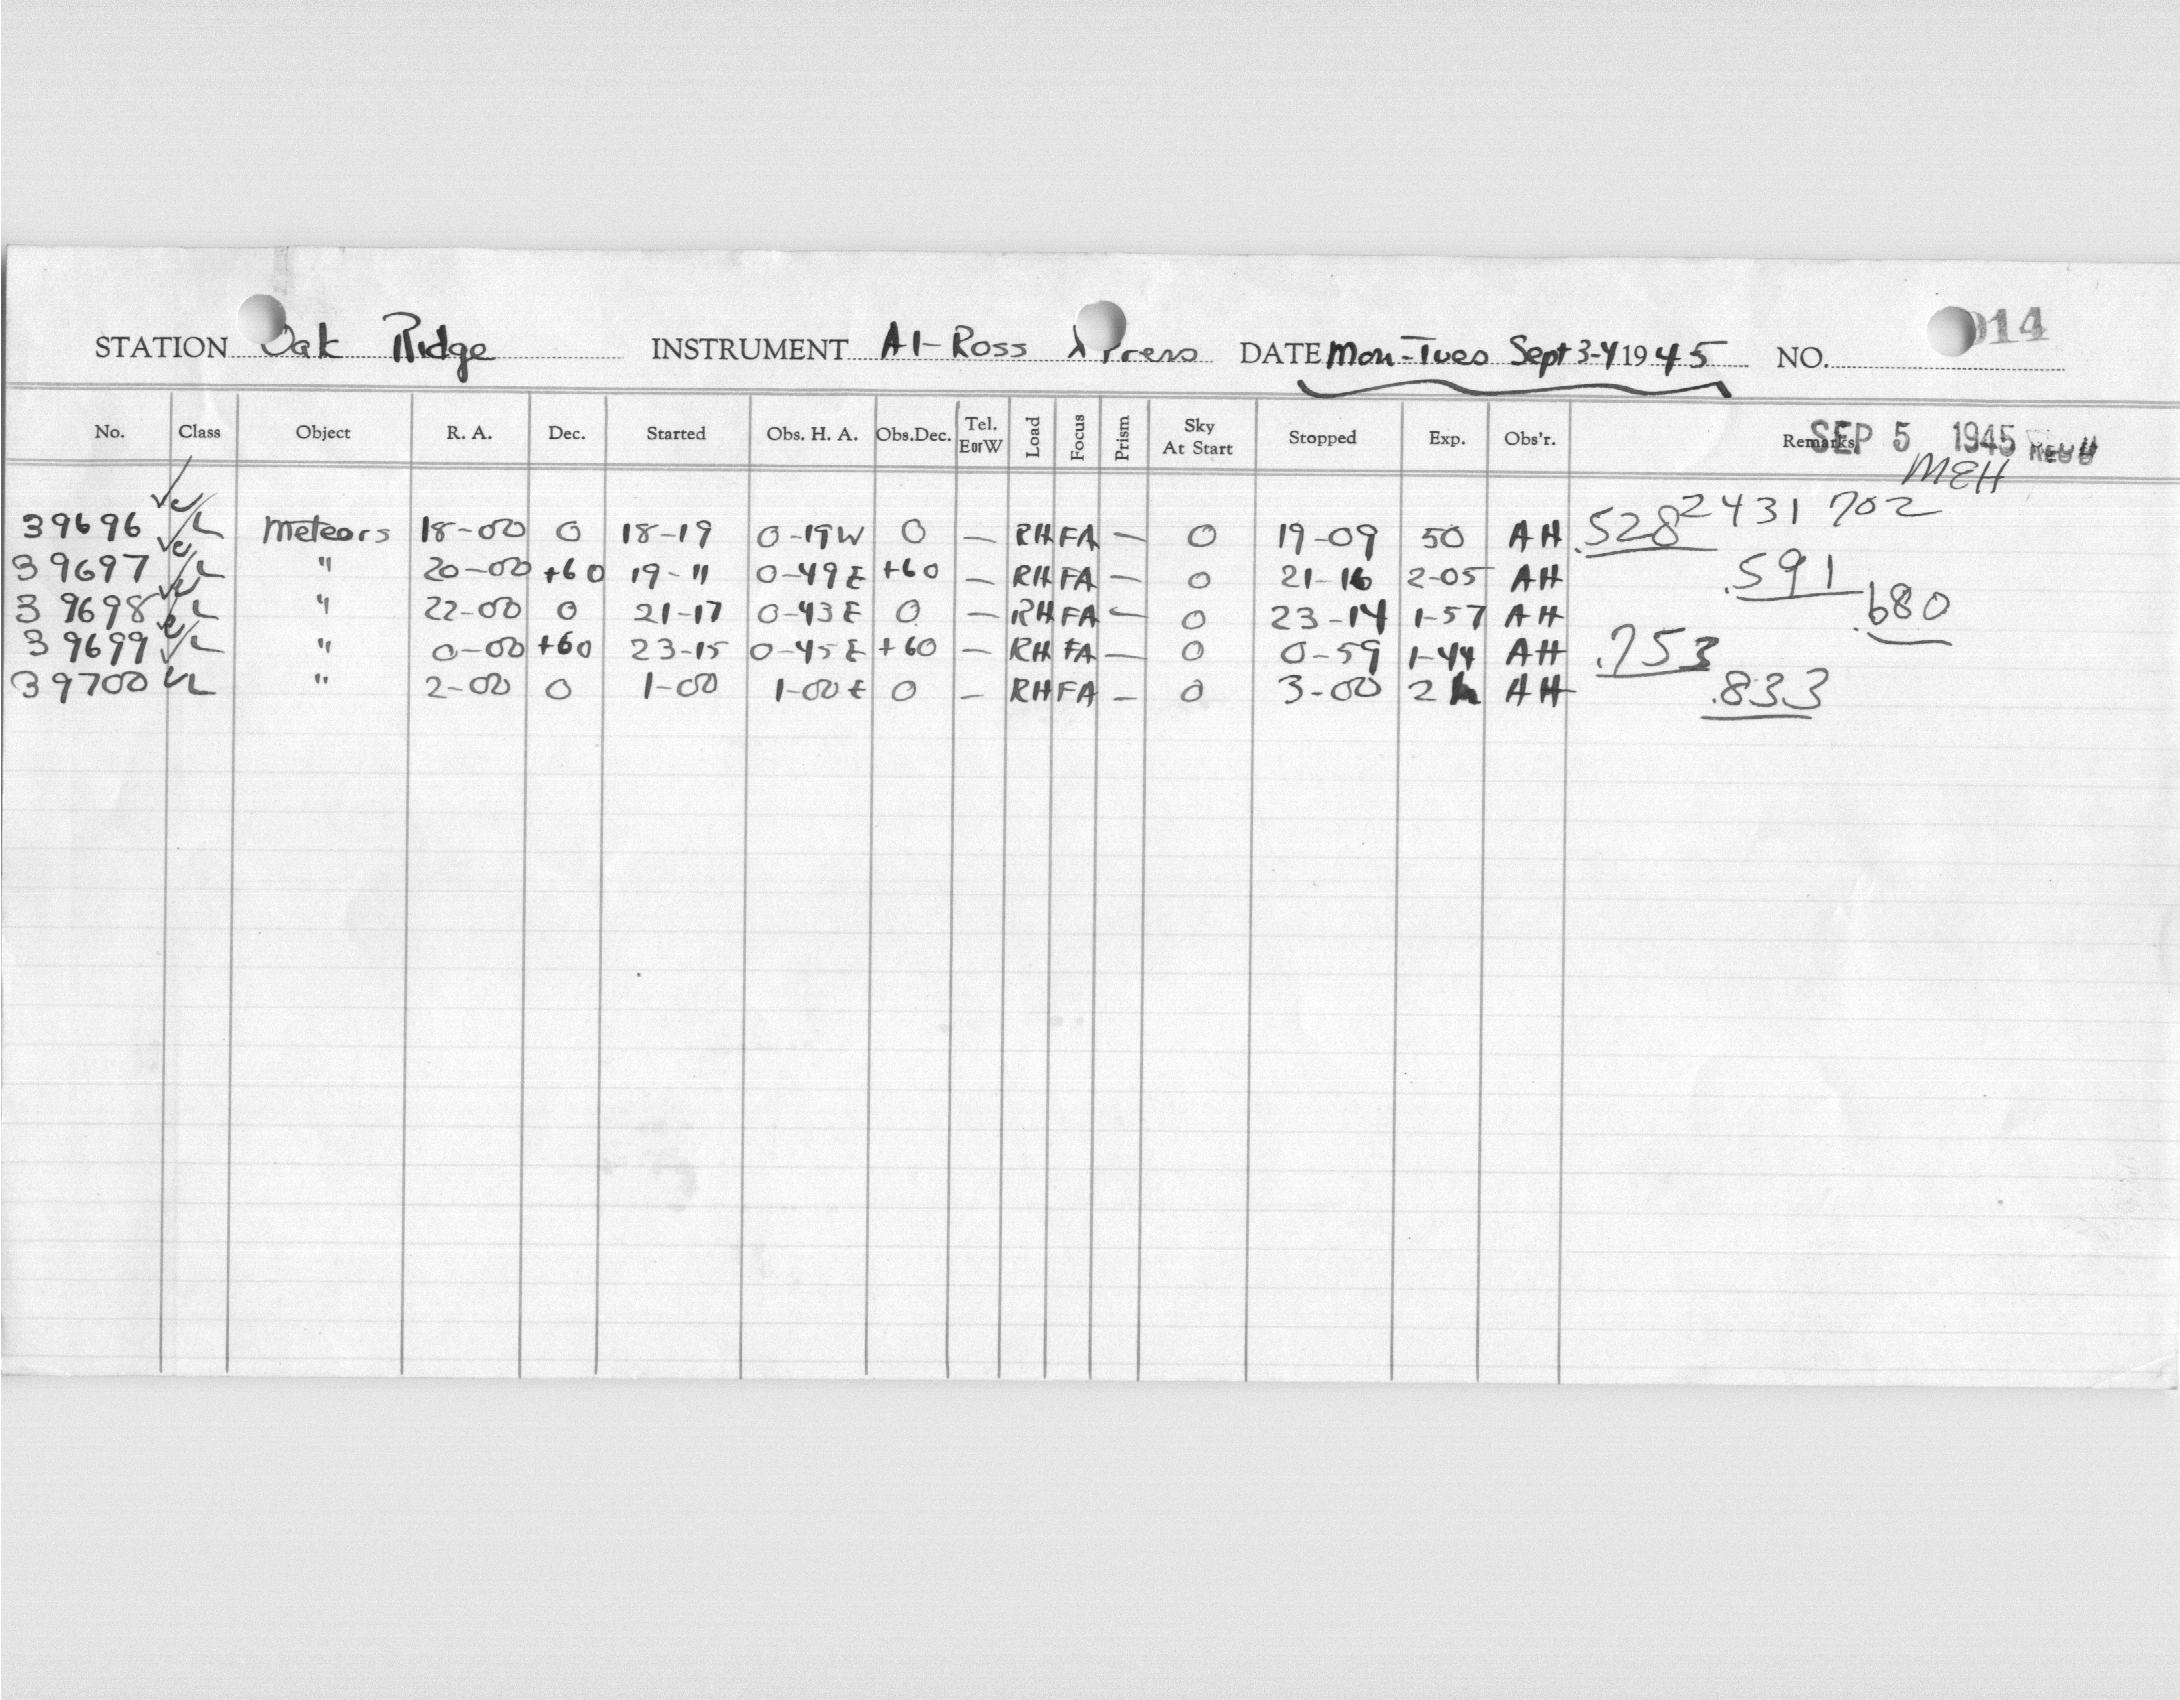 014
STATION Oak Ridge INSTRUMENT AI-Ross Xpress DATE Mon-Tues Sept 3-4 1945 NO.
No. Class Object R. A. Dec. Started Obs. H. A. Obs.Dec. Tel. E or W Load Focus Prism Sky At Start Stopped Exp. Obs'r. Remarks
SEP 5 1945
MEH
39696 L Meteors 18-00 0 18-19 0-19W 0 — RH FA — 0 19-09 50 AH .528 2431 702
39697 L " 20-00 +60 19-11 0-49E +60 — RH FA — 0 21-16 2-05 AH .591
39698 L " 22-00 0 21-17 0-43E 0 — RH FA — 0 23-14 1-57 AH .680
39699 L " 0-00 +60 23-15 0-45E +60 — RH FA — 0 0-59 1-44 AH .753
39700 L " 2-00 0 1-00 1-00E 0 — RH FA — 0 3-00 2h AH .833